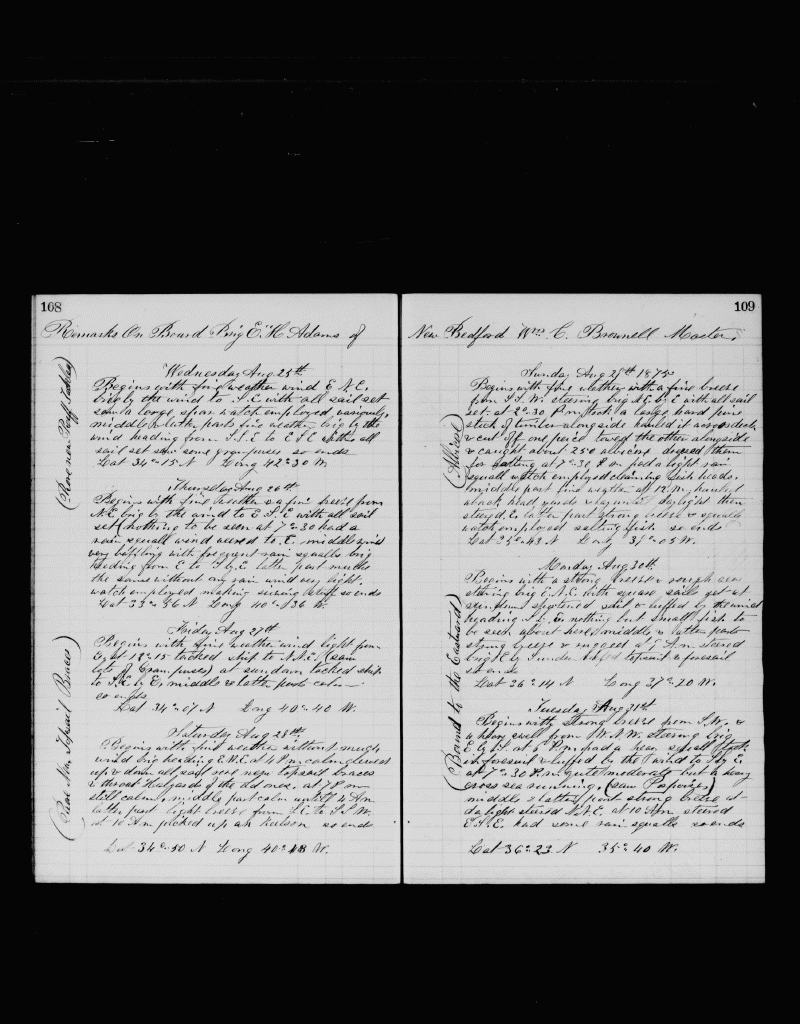 108
Remarks On Board Brig E. H. Adams of
(Rove new Reef Tackles)
Wednesday Aug 25th
Begins with fine weather wind E N.E.
brig by the wind to S.E with all sail set
saw a large spar watch employed variously
middle & latter parts fine weather brig by the
wind heading from S.S.E to E S E with all
sail set saw some grampuses so ends
Lat 34°-15 N Long 42°30 W
Thursday Aug 26th
Begins with fine weather & a fine breeze from
N.E brig by the wind to E S.E with all sail
set (nothing to be seen at 7°-30 had a
rain squall wind veered to E. middle wind
very baffling with frequent rain squalls brig
heading from E to S by E latter part much
the same without any rain wind very light.
watch employed making seizing stuff so ends
Lat 33°-56 N Long 40°-36 W.
Friday Aug 27th
Begins with fine weather wind light from
E, at 12°-15 tacked ship to N.N.E. (saw
lots of Grampuses) at sundown tacked ship
to S.E. by E, middle & latter parts calm
so ends
Lat 34°-07 N Long 40°-40 W.
(Rove New Topsail Braces)
Saturday Aug 28th
Begins with fine weather without much
wind brig heading E.N.E at 4 P.m. calm clewed
up & down all sail rove new topsail braces
& throat Halyards of the old ones, at 7 P m
still calm, middle part calm until 4 A.m
latter part light breeze from S.E. to S.S.W.
at 10 A.m picked up a so ends
Lat 34°-50 N Long 40°-48 W.
109
New Bedford Wm C. Brownell Master,
(Albicore)
Sunday Aug 29th 1875
Begins with fine weather with a fine breeze
from S.S.W. steering brig N.E. by E with all sail
set. at 2°-30 P.m. took a large hard pine
stick of timber alongside hauled it across deck
& cut off one peice towed the other alongside
& caught about 250 albicore dressed them
for salting at 7°-30 P m had a light rain
squall watch employed cleaning fish heads.
middle part fine weather at 12 M. hauled
aback head yards until daylight then
steered E. latter part strong breeze & squally
watch employed salting fish so ends
Lat 35°-43 N Long 38°-05 W.
(Bound to the Eastward)
Monday Aug 30th
Begins with a strong breeze & rough sea
steering brig E.N.E with square sails set at
sundown shortened sail & luffed by the wind
heading S.E. nothing but small fish to
be seen about here, middle & latter parts
strong breeze & rugged at 5 A.m. steered
brig E by S under topsail & foresail
so ends
Lat 36°-14 N Long 37°-20 W.
Tuesday Aug 31st
Begins with strong breeze from S.W. &
a heavy swell from W.N.W. steering brig
E by S at 6 P.m. had a heavy squall took
in foresail & luffed by the wind to S by E
at 7°-30 P.m. quite moderate but a heavy
cross sea running, (saw Porpoises)
middle & latter part strong breeze at
daylight steered N.N.E. at 10 A.m. steered
E.S.E. had some rain squalls so ends
Lat 36°-23 N 35°-40 W.